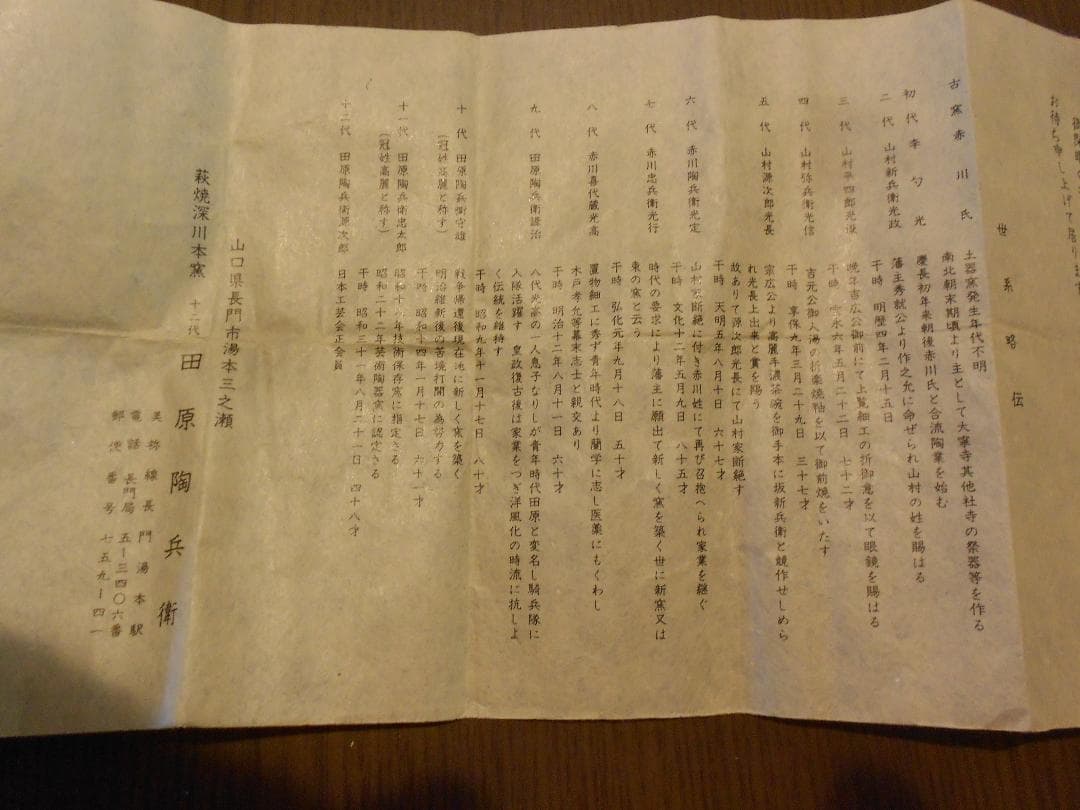 お待ち申し上げて居ります
世系略伝
古窯赤川氏 土器窯発生年代不明
南北朝末期頃より主として大寧寺其他社寺の祭器等を作る
初代 李勺光 慶長初年来朝後赤川氏と合流陶業を始む
二代 山村新兵衛光政 藩主秀就公より作之允に命ぜられ山村の姓を賜はる
干時 明歴四年二月十五日
三代 山村平四郎光俊 晩年吉広公御前にて上覧細工の折御意を以て眼鏡を賜はる
干時 宝永六年五月二十二日 七十二才
四代 山村弥兵衛光信 吉元公御入湯の折楽焼釉を以て御前焼をいたす
干時 享保九年三月二十九日 三十七才
五代 山村源次郎光長 宗広公より高麗手濃茶碗を御手本に坂新兵衛と競作せしめら
れ光長上出来と賞を賜う
故ありて源次郎光長にて山村家断絶す
干時 天明五年八月十日 六十七才
六代 赤川陶兵衛光定 山村家断絶に付き赤川姓にて再び召抱へられ家業を継ぐ
干時 文化十二年五月九日 八十五才
七代 赤川忠兵衛光行 時代の要求により藩主に願出て新しく窯を築く世に新窯又は
東の窯と云う
干時 弘化元年九月十八日 五十才
八代 赤川喜代蔵光高 置物細工に秀ず青年時代より蘭学に志し医薬にもくわし
木戸孝允等幕末志士と親交あり
干時 明治十二年八月十一日 六十才
九代 田原陶兵衛謙治 八代光高の一人息子なりしが青年時代田原と変名し騎兵隊に
入隊活躍す 皇政復古後は家業をつぎ洋風化の時流に抗しよ
く伝統を維持す
干時 昭和九年十一月十七日 八十才
十代 田原陶兵衛守雄 戦争帰還後現在地に新しく窯を築く
(冠姓高麗と称す) 明治維新後の苦境打開の為努力する
干時 昭和十四年一月十七日 六十一才
十一代 田原陶兵衛忠太郎 昭和十八年技術保存窯に指定さる
(冠姓高麗と称す) 昭和二十二年芸術陶器窯に認定さる
干時 昭和三十一年八月二十一日 四十八才
十二代 田原陶兵衛源次郎 日本工芸会正会員
山口県長門市湯本三之瀬
萩焼深川本窯 十二代 田原陶兵衛
美祢線長門湯本駅
電話 長門局 五―三四〇六番
郵便番号 七五九―四一